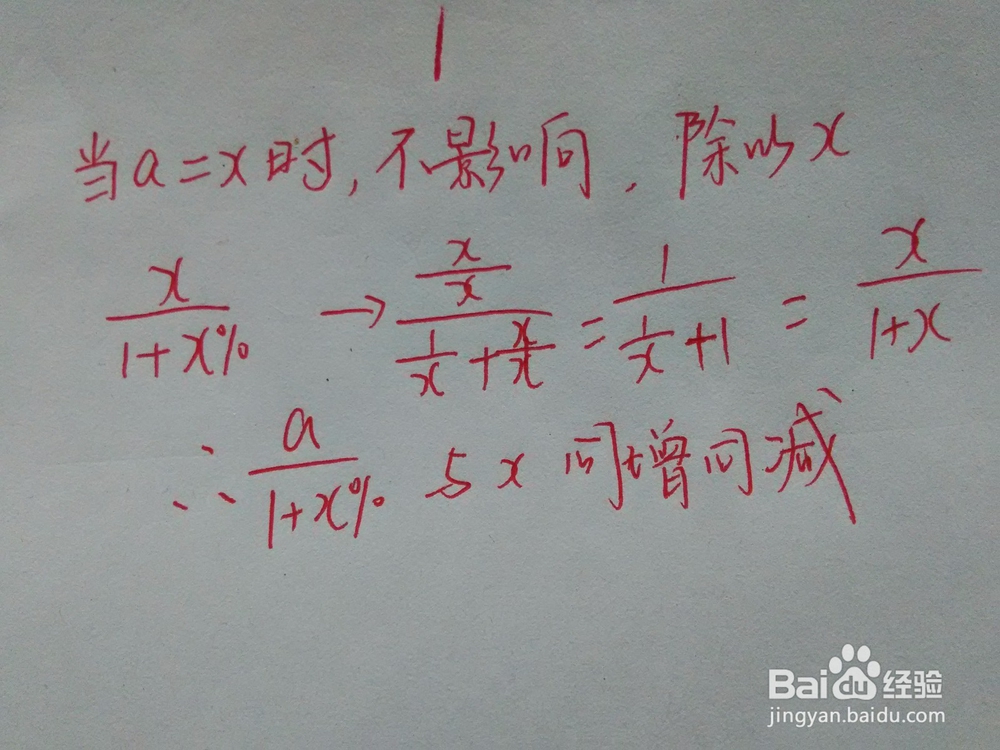 1
当a=x时,不影响.除以x
x/(1+x%) → (x/x)/(1/x+x/x) = 1/(1/x+1) = x/(1+x)
∴ a/(1+x%) 与x同增同减
Baidu经验
jingyan.baidu.com